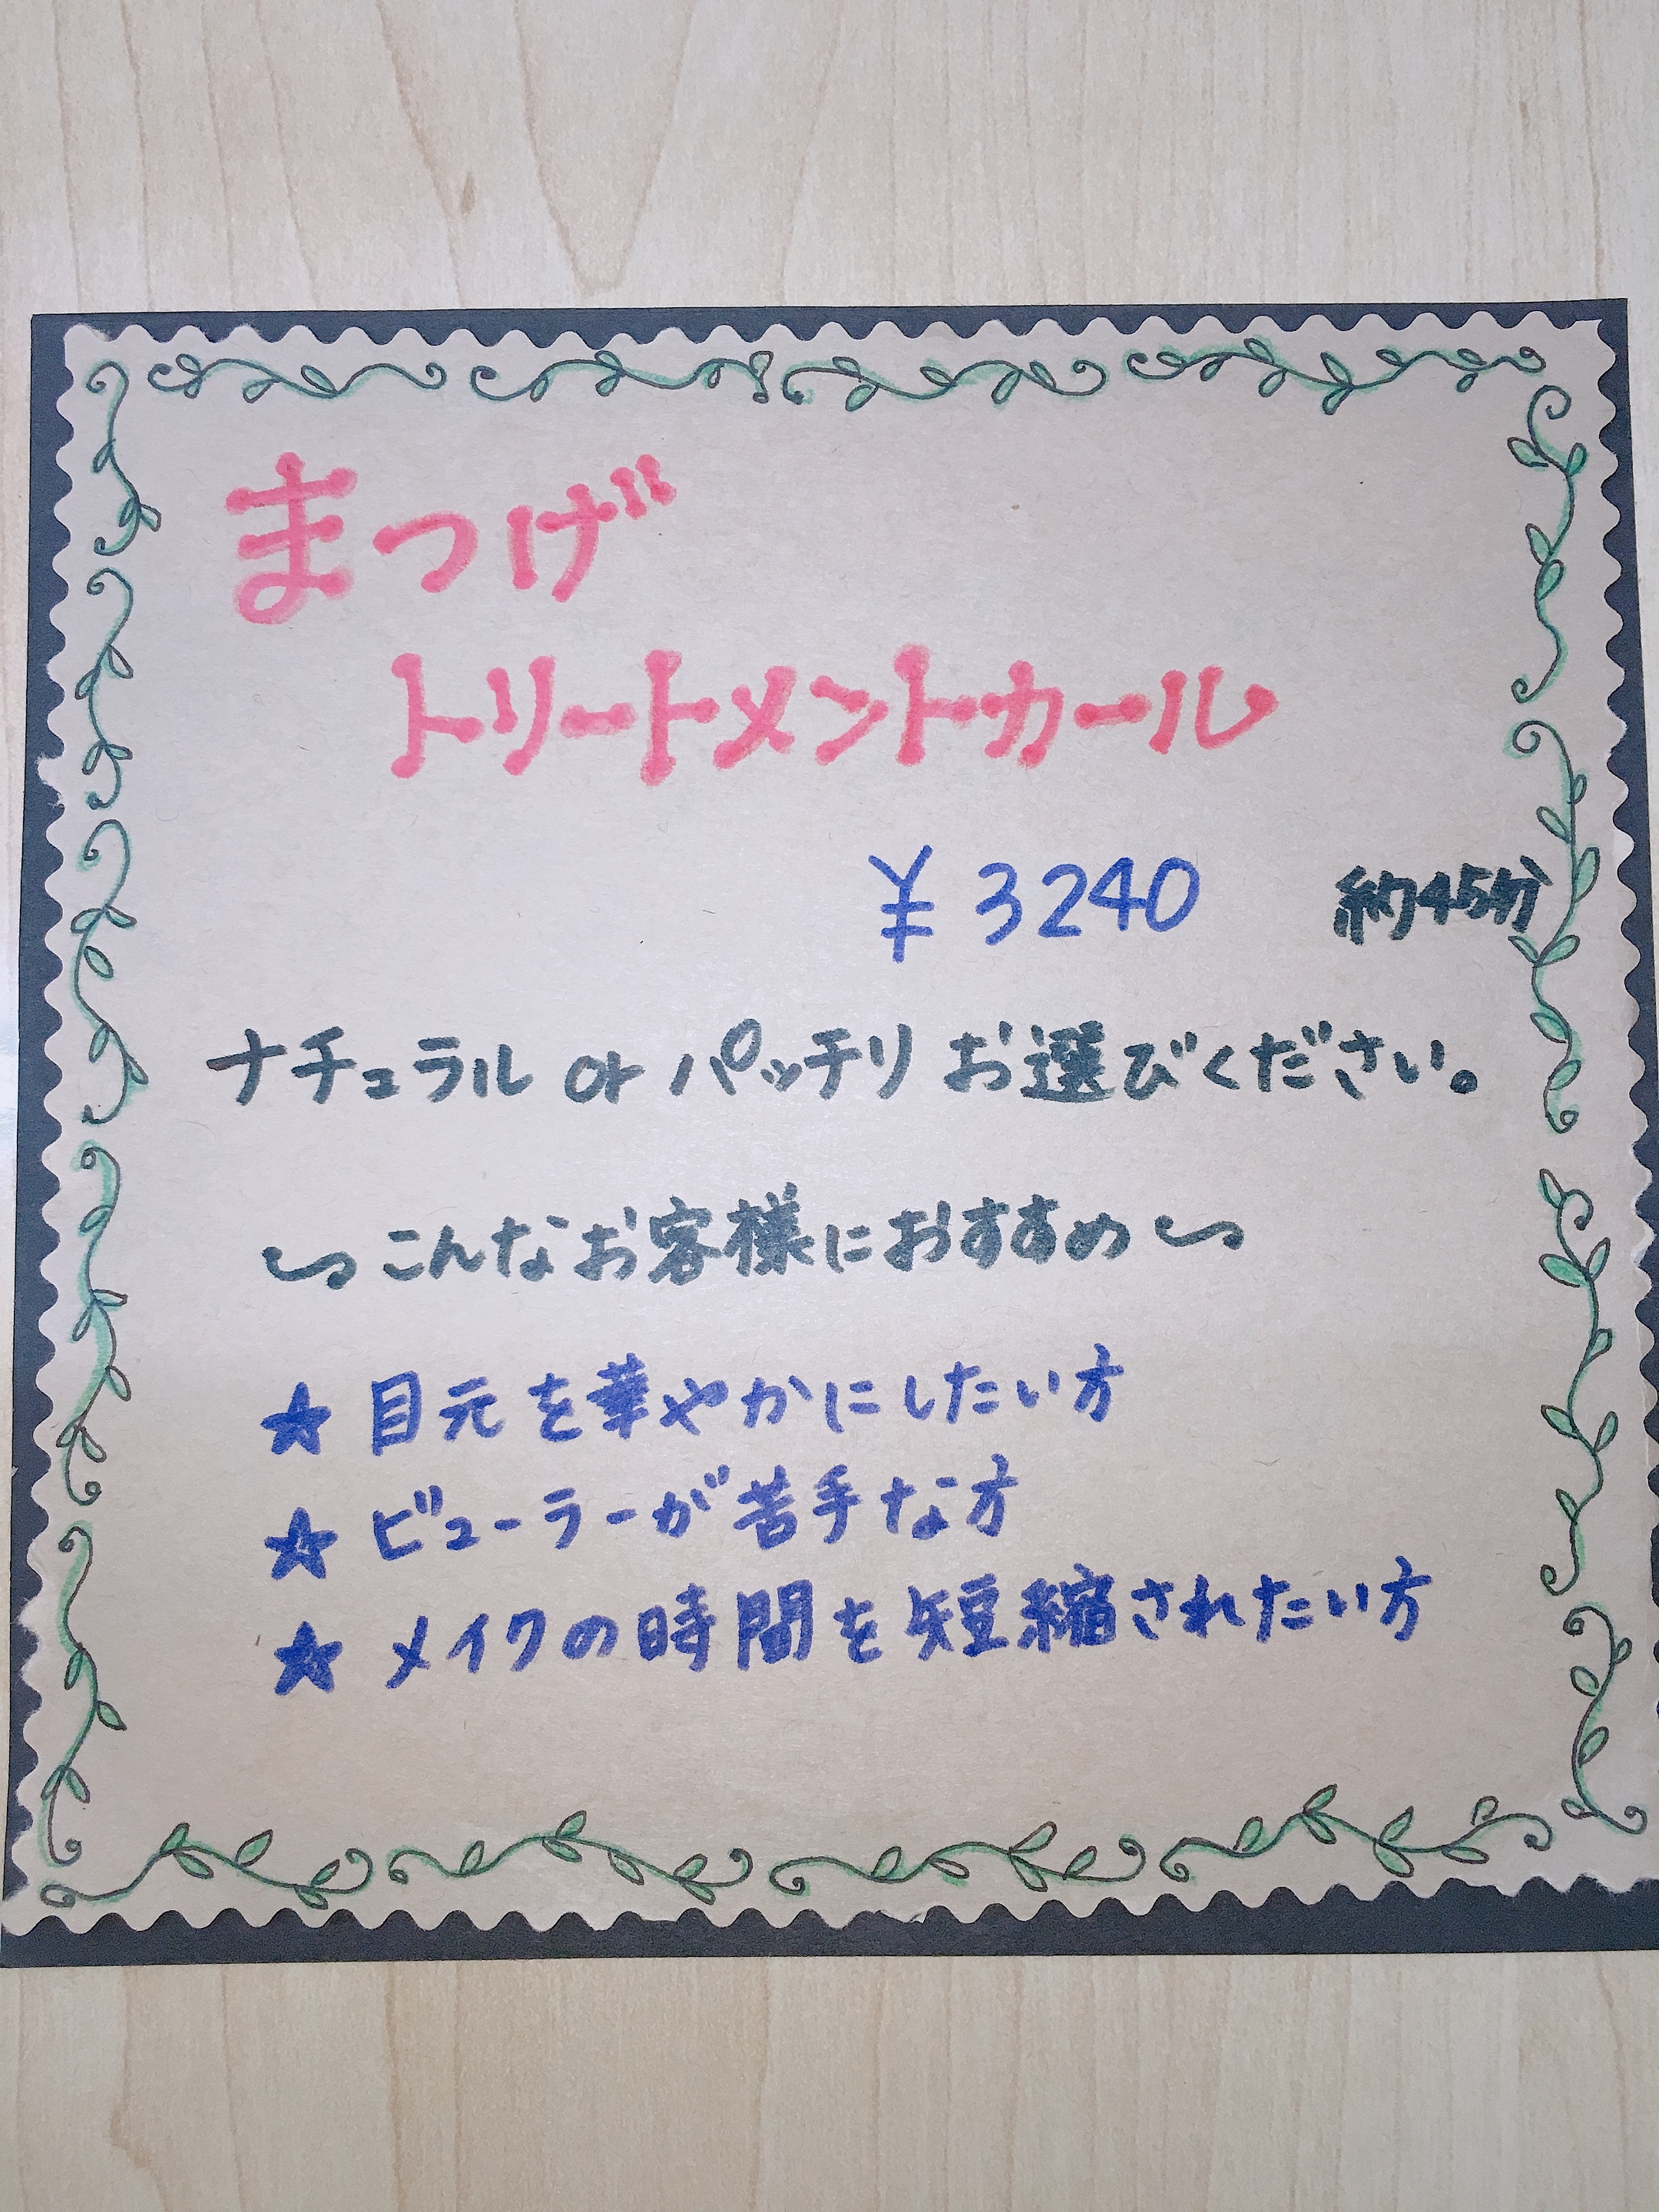 まつげ
トリートメントカール
¥3240 約45分
ナチュラル or パッチリ お選びください。
〜こんなお客様におすすめ〜
★ 目元を華やかにしたい方
★ ビューラーが苦手な方
★ メイクの時間を短縮されたい方